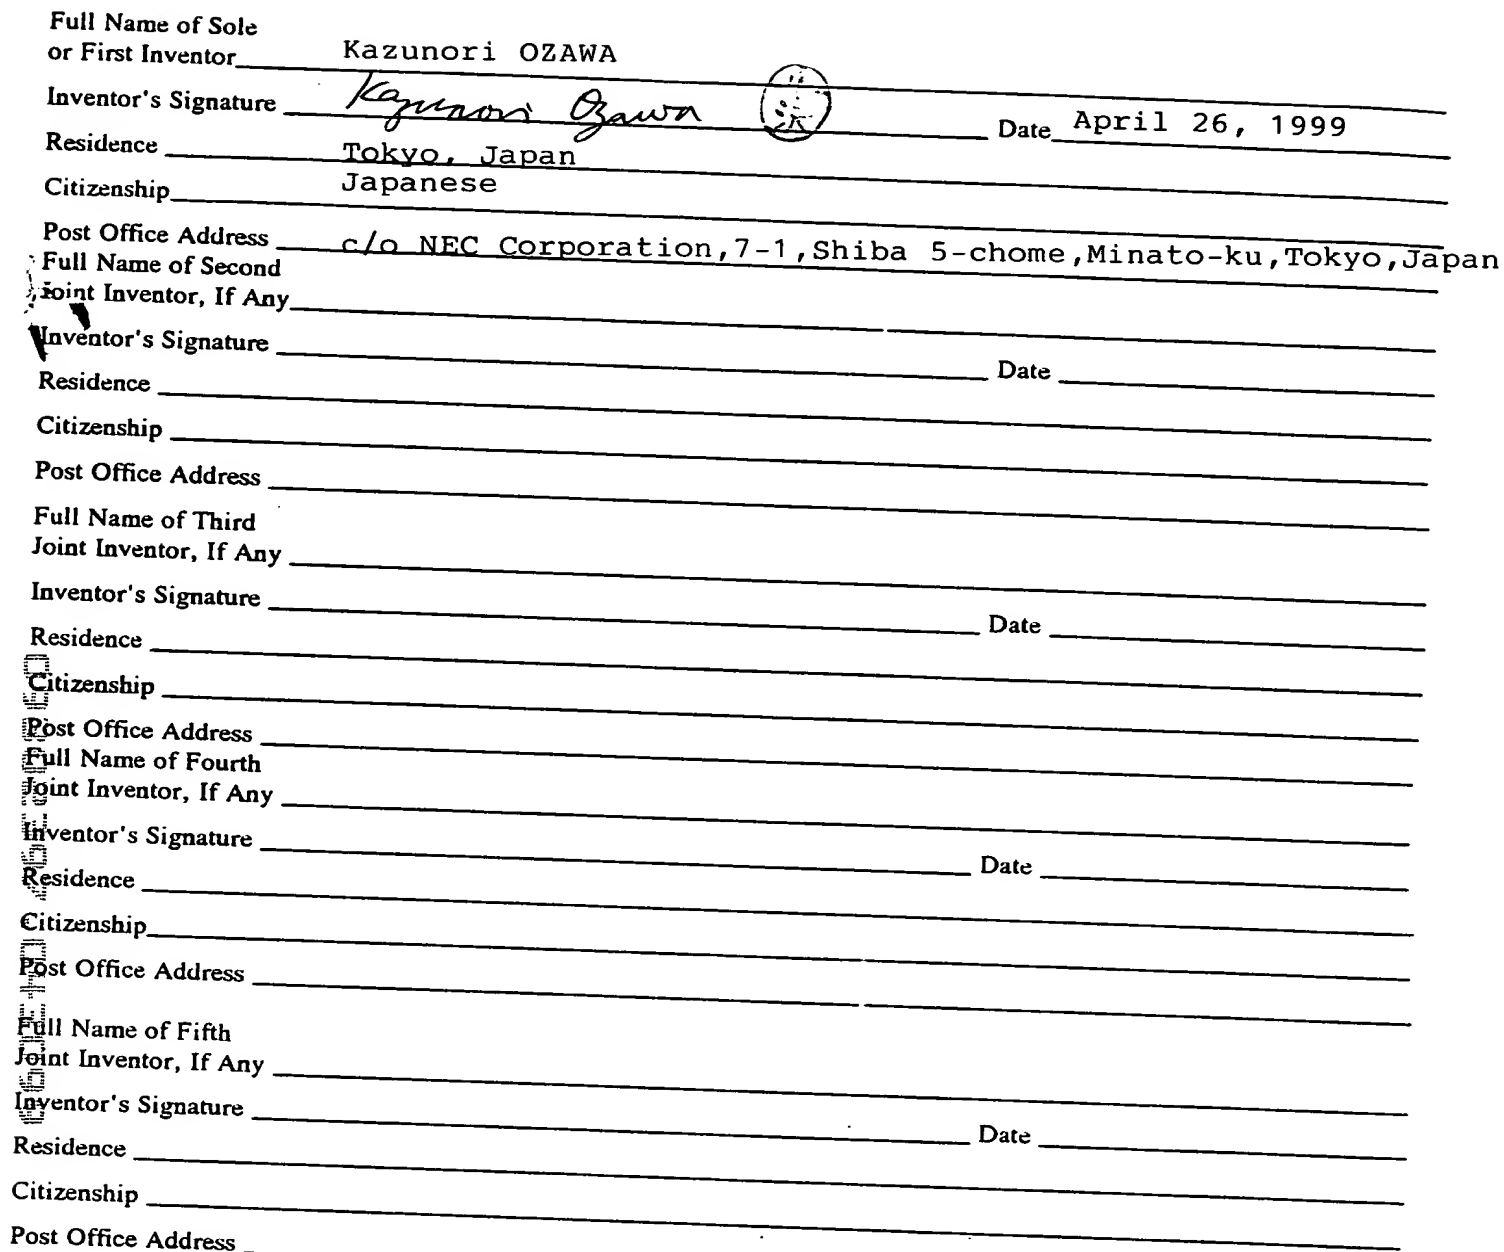 Full Name of Sole
or First Inventor Kazunori OZAWA
Inventor's Signature Kazunori Ozawa Date April 26, 1999
Residence Tokyo, Japan
Citizenship Japanese
Post Office Address c/o NEC Corporation,7-1,Shiba 5-chome,Minato-ku,Tokyo,Japan
Full Name of Second
Joint Inventor, If Any
Inventor's Signature Date
Residence
Citizenship
Post Office Address
Full Name of Third
Joint Inventor, If Any
Inventor's Signature Date
Residence
Citizenship
Post Office Address
Full Name of Fourth
Joint Inventor, If Any
Inventor's Signature Date
Residence
Citizenship
Post Office Address
Full Name of Fifth
Joint Inventor, If Any
Inventor's Signature Date
Residence
Citizenship
Post Office Address